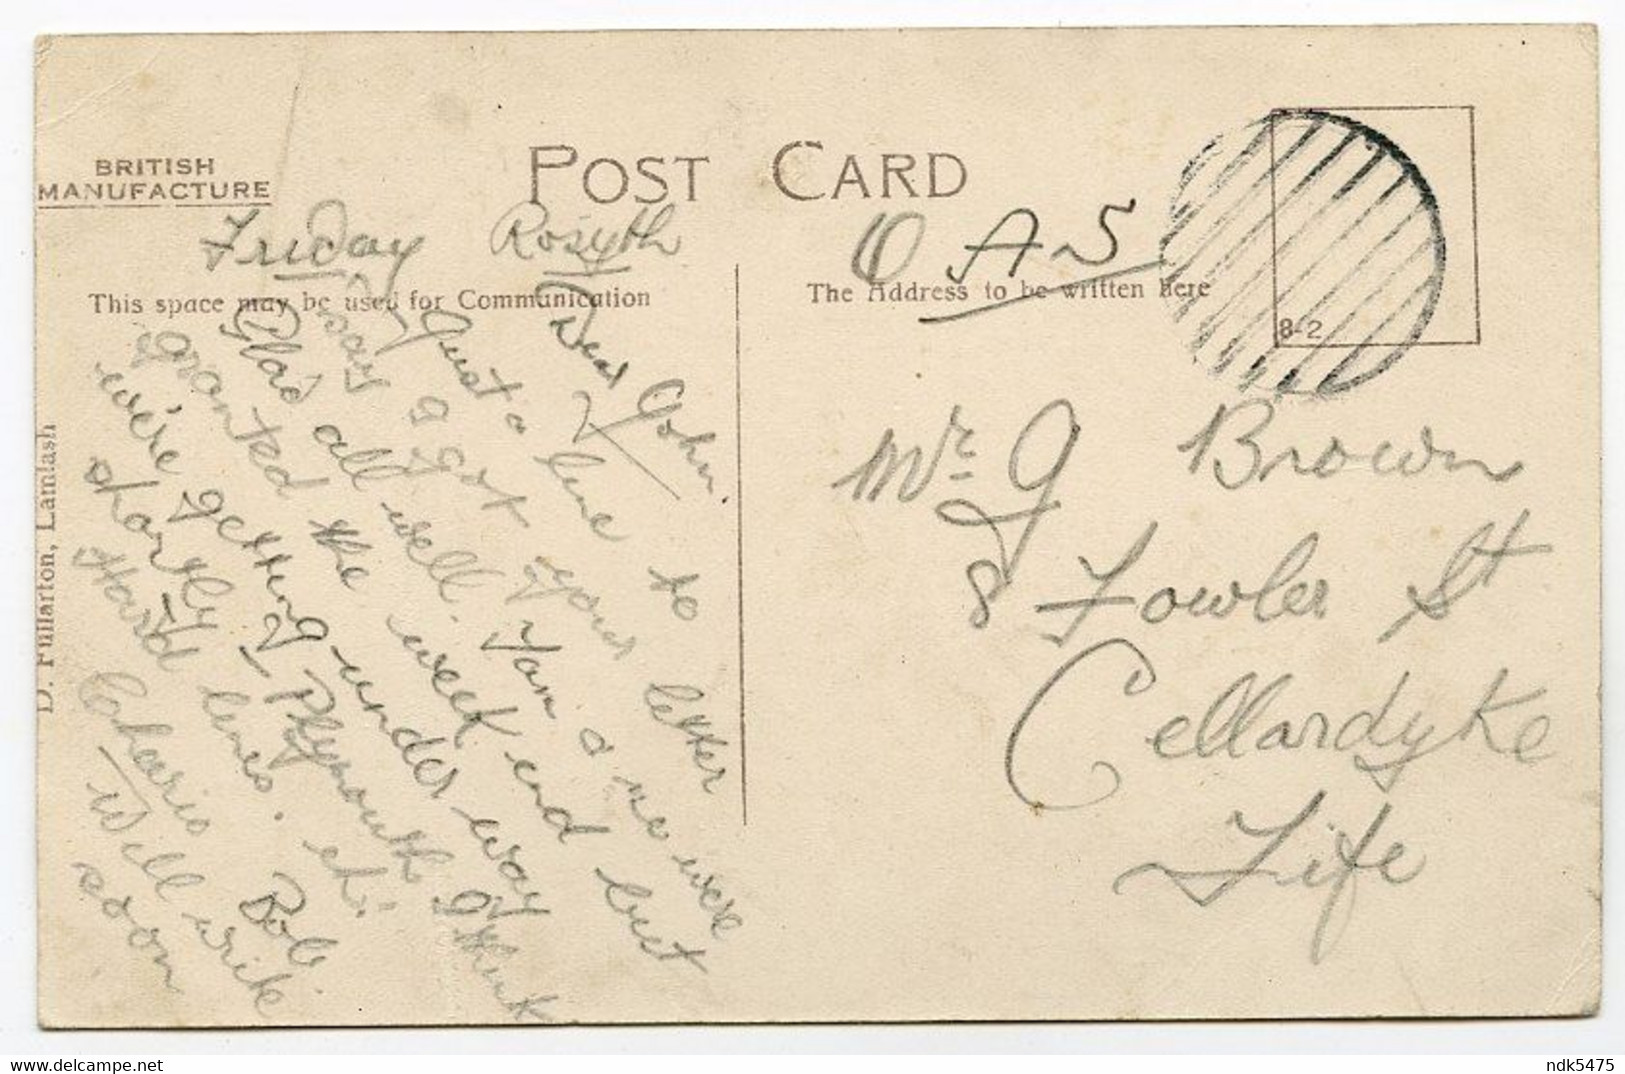 BRITISH
MANUFACTURE
POST CARD
Friday Rosyth
This space may be used for Communication
Dear John.
Just a line to
say I got your letter
Glad all well. Yam a we were
granted the week end but
we're getting under way
shortly - Plymouth I think
Hard lines. eh.
Cheerio
Bob.
Will write
soon
D. Fullarton, Lamlash
O A S
The Address to be written here
8-2
Mr. J Brown
8 Fowler St
Cellardyke
Fife
www.delcampe.net
ndk5475